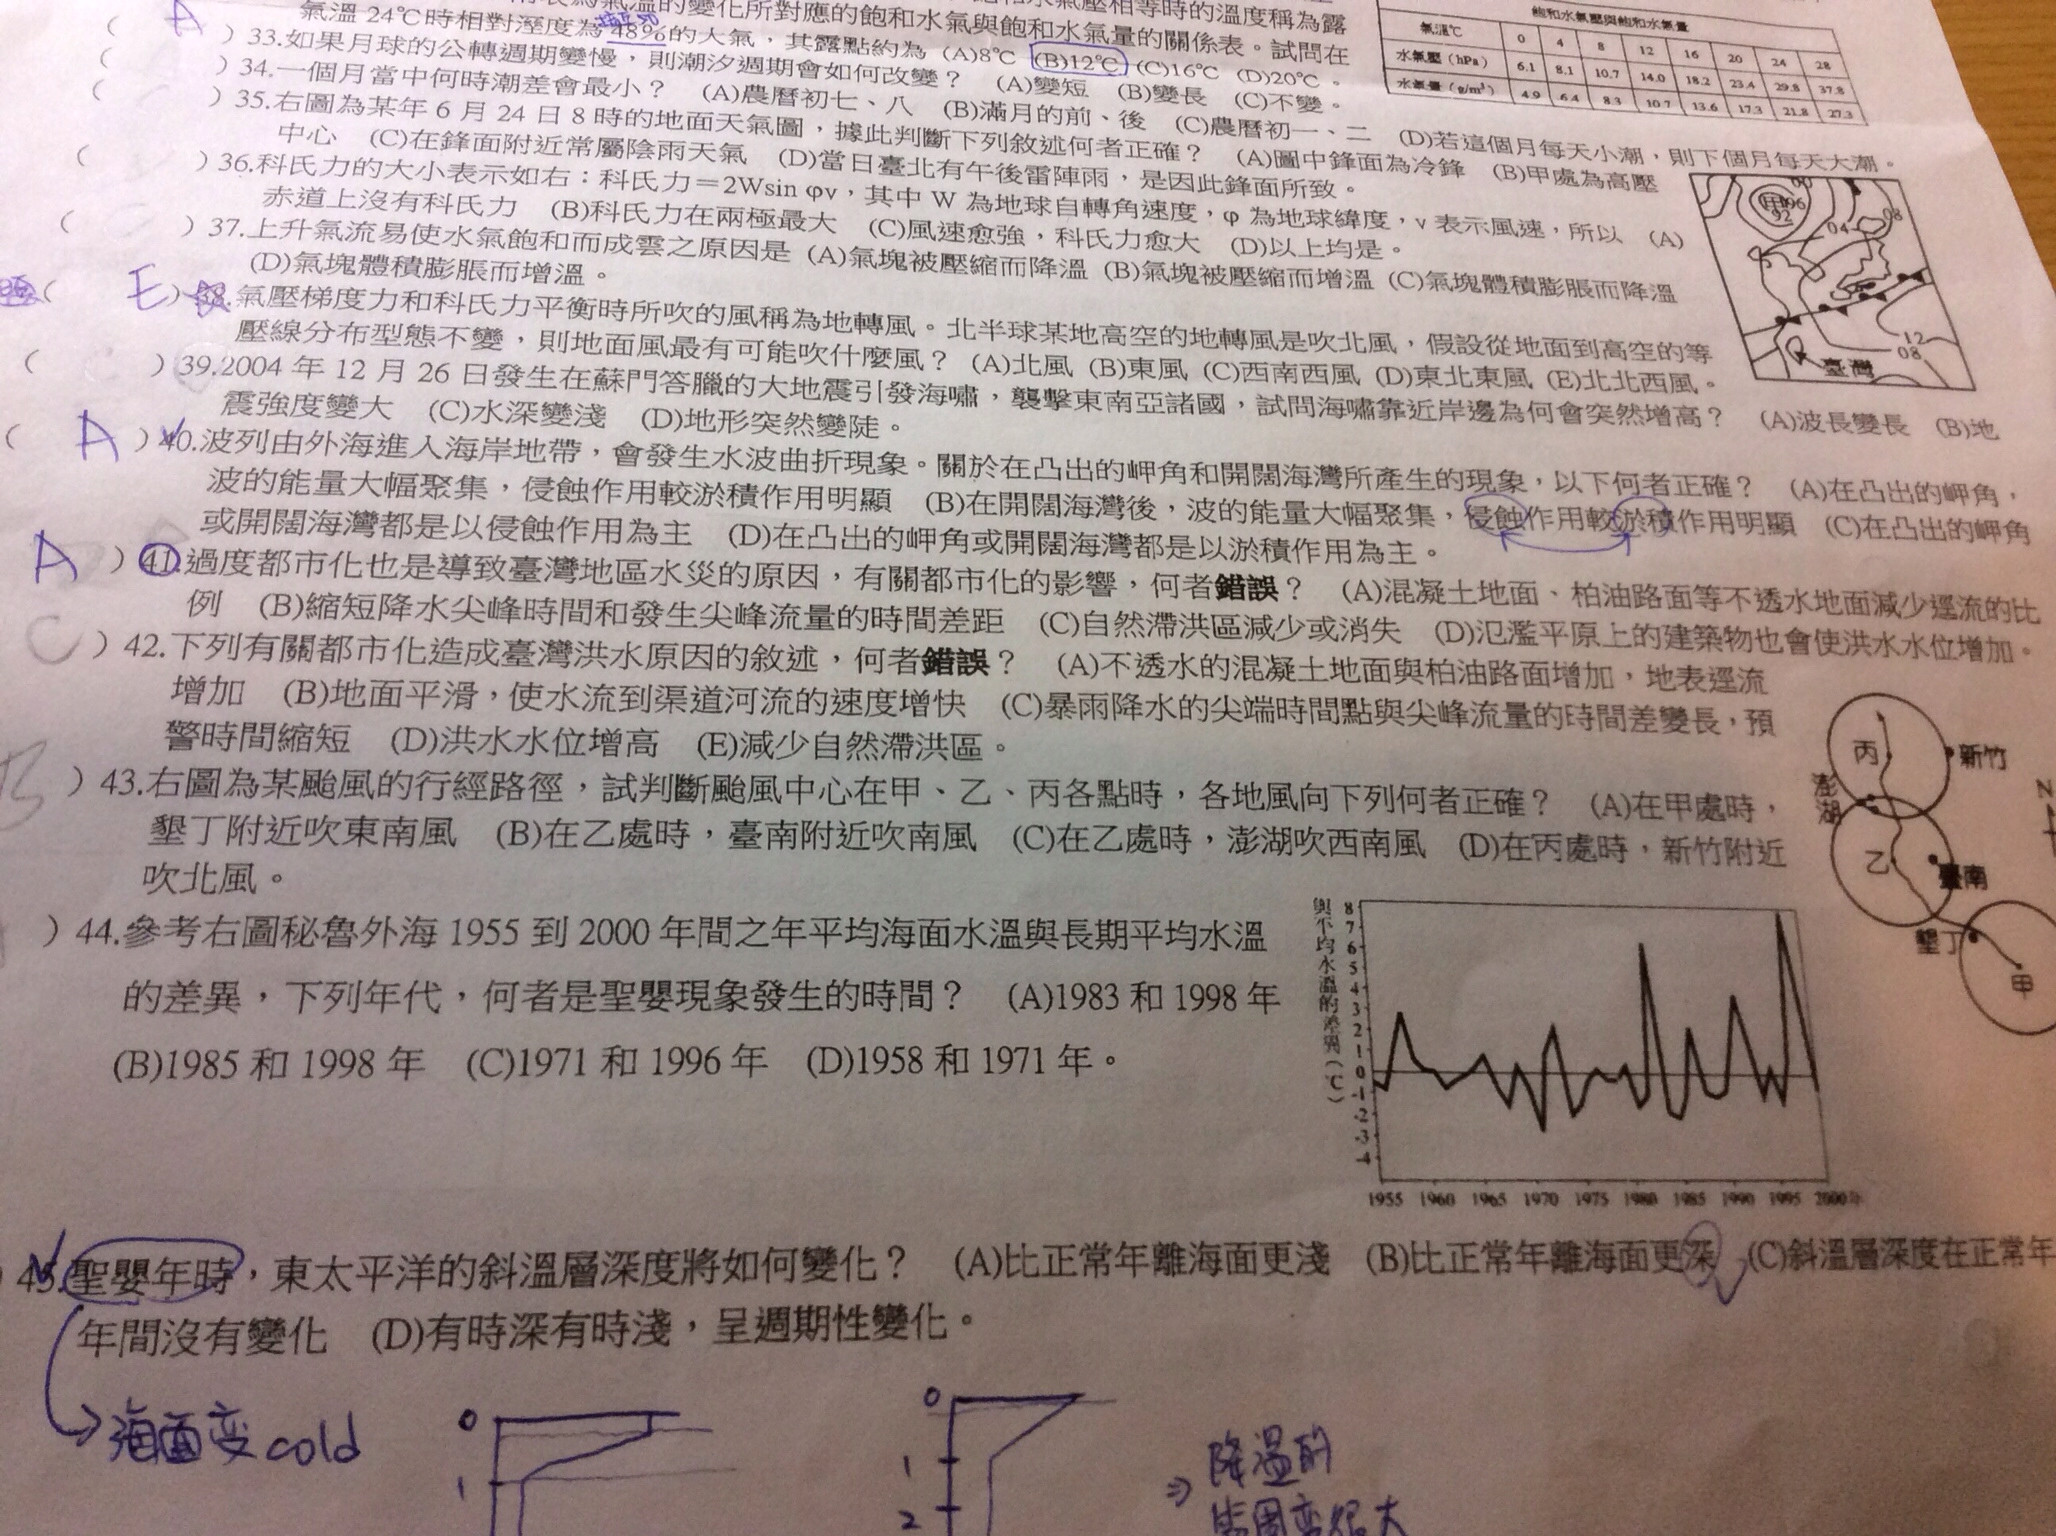 氣溫的變化所對應的飽和水氣與飽和水氣量的關係表。試問在
氣溫 24℃時相對溼度為 48%的大氣，其露點約為 (A)8℃ (B)12℃ (C)16℃ (D)20℃。
飽和水氣壓與飽和水氣量
氣溫℃ 0 4 8 12 16 20 24 28
水氣壓（hPa） 6.1 8.1 10.7 14.0 18.2 23.4 29.8 37.8
水氣量（g/m³） 4.9 6.4 8.3 10.7 13.6 17.3 21.8 27.3
A
( ) 33.如果月球的公轉週期變慢，則潮汐週期會如何改變？ (A)變短 (B)變長 (C)不變。
( ) 34.一個月當中何時潮差會最小？ (A)農曆初七、八 (B)滿月的前、後 (C)農曆初一、二 (D)若這個月每天小潮，則下個月每天大潮。
( ) 35.右圖為某年 6 月 24 日 8 時的地面天氣圖，據此判斷下列敘述何者正確？ (A)圖中鋒面為冷鋒 (B)甲處為高壓
中心 (C)在鋒面附近常屬陰雨天氣 (D)當日臺北有午後雷陣雨，是因此鋒面所致。
( ) 36.科氏力的大小表示如右：科氏力＝2Wsin φv，其中 W 為地球自轉角速度，φ 為地球緯度，v 表示風速，所以 (A)
赤道上沒有科氏力 (B)科氏力在兩極最大 (C)風速愈強，科氏力愈大 (D)以上均是。
( ) 37.上升氣流易使水氣飽和而成雲之原因是 (A)氣塊被壓縮而降溫 (B)氣塊被壓縮而增溫 (C)氣塊體積膨脹而降溫
(D)氣塊體積膨脹而增溫。
( E ) 38.氣壓梯度力和科氏力平衡時所吹的風稱為地轉風。北半球某地高空的地轉風是吹北風，假設從地面到高空的等
壓線分布型態不變，則地面風最有可能吹什麼風？ (A)北風 (B)東風 (C)西南西風 (D)東北東風 (E)北北西風。
甲
92
96
00
04
08
12
08
臺灣
( ) 39.2004 年 12 月 26 日發生在蘇門答臘的大地震引發海嘯，襲擊東南亞諸國，試問海嘯靠近岸邊為何會突然增高？ (A)波長變長 (B)地
震強度變大 (C)水深變淺 (D)地形突然變陡。
( A ) 40.波列由外海進入海岸地帶，會發生水波曲折現象。關於在凸出的岬角和開闊海灣所產生的現象，以下何者正確？ (A)在凸出的岬角，
波的能量大幅聚集，侵蝕作用較淤積作用明顯 (B)在開闊海灣後，波的能量大幅聚集，侵蝕作用較淤積作用明顯 (C)在凸出的岬角
或開闊海灣都是以侵蝕作用為主 (D)在凸出的岬角或開闊海灣都是以淤積作用為主。
A ) 41.過度都市化也是導致臺灣地區水災的原因，有關都市化的影響，何者錯誤？ (A)混凝土地面、柏油路面等不透水地面減少逕流的比
例 (B)縮短降水尖峰時間和發生尖峰流量的時間差距 (C)自然滯洪區減少或消失 (D)氾濫平原上的建築物也會使洪水水位增加。
C ) 42.下列有關都市化造成臺灣洪水原因的敘述，何者錯誤？ (A)不透水的混凝土地面與柏油路面增加，地表逕流
增加 (B)地面平滑，使水流到渠道河流的速度增快 (C)暴雨降水的尖端時間點與尖峰流量的時間差變長，預
警時間縮短 (D)洪水水位增高 (E)減少自然滯洪區。
B ) 43.右圖為某颱風的行經路徑，試判斷颱風中心在甲、乙、丙各點時，各地風向下列何者正確？ (A)在甲處時，
墾丁附近吹東南風 (B)在乙處時，臺南附近吹南風 (C)在乙處時，澎湖吹西南風 (D)在丙處時，新竹附近
吹北風。
丙 新竹
澎湖
N
乙 臺南
墾丁
甲
) 44.參考右圖秘魯外海 1955 到 2000 年間之年平均海面水溫與長期平均水溫
的差異，下列年代，何者是聖嬰現象發生的時間？ (A)1983 和 1998 年
(B)1985 和 1998 年 (C)1971 和 1996 年 (D)1958 和 1971 年。
與平均水溫的差異（℃）
8
7
6
5
4
3
2
1
0
-1
-2
-3
-4
1955 1960 1965 1970 1975 1980 1985 1990 1995 2000年
) 45.聖嬰年時，東太平洋的斜溫層深度將如何變化？ (A)比正常年離海面更淺 (B)比正常年離海面更深 (C)斜溫層深度在正常年
年間沒有變化 (D)有時深有時淺，呈週期性變化。
海面変cold
0
1
0
1
2
⇒ 降溫的